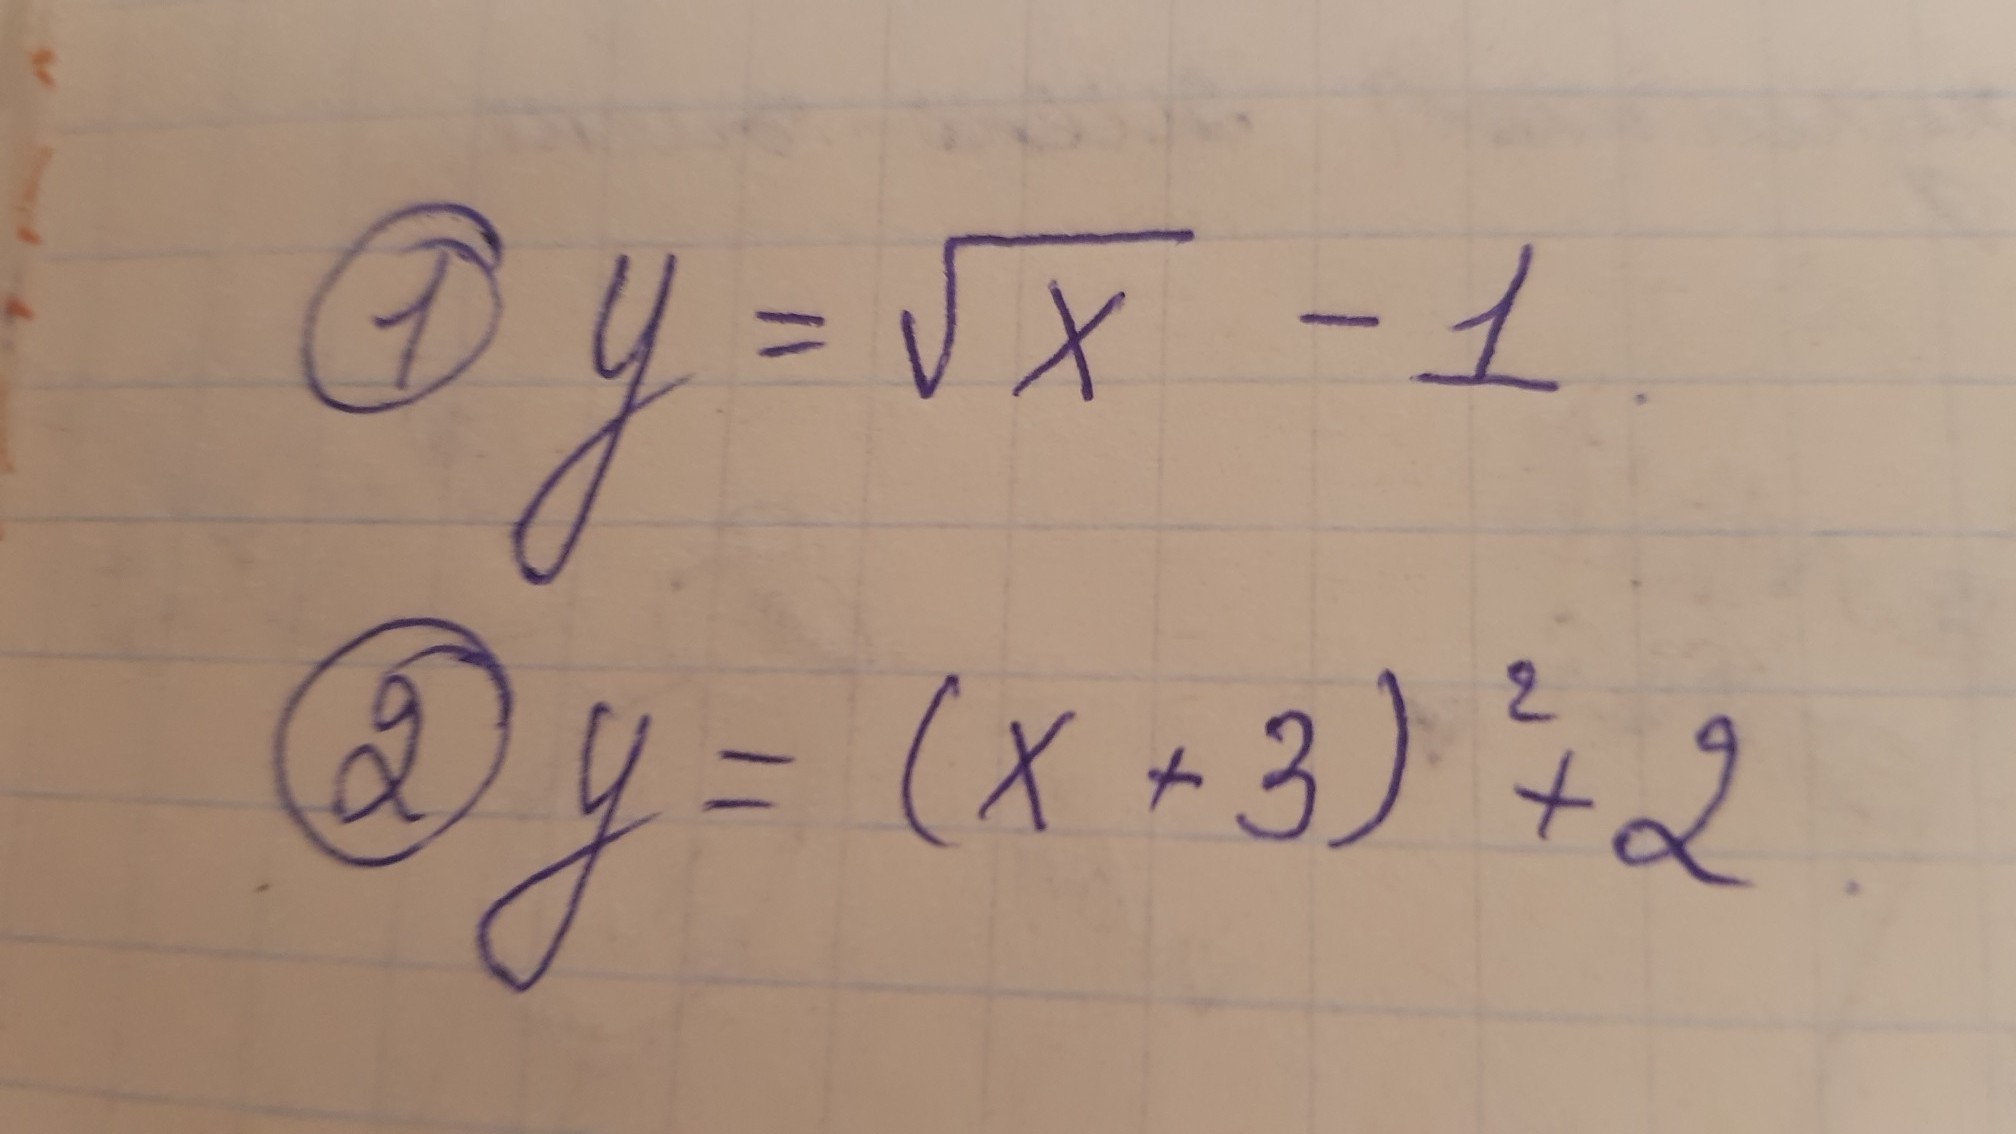 ① y = √x - 1.
② y = (x + 3)² + 2.